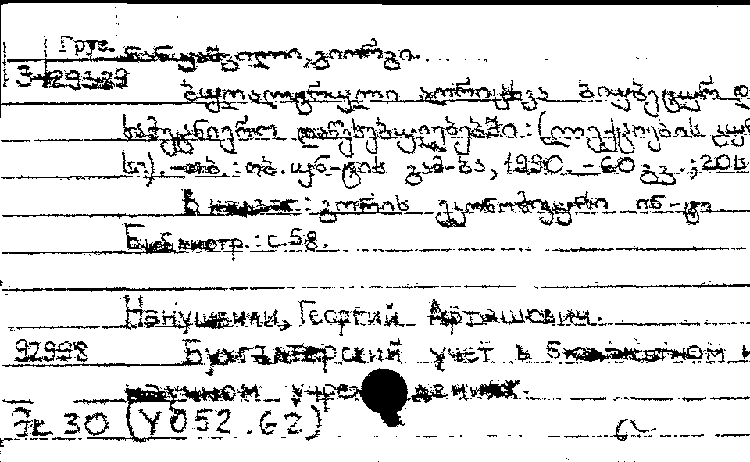 Груз.
ნანუაშვილი, გიორგი.
3-29139
ბუღალტრული აღრიცხვა ბიუჯეტურ დ
სამეცნიერო დაწესებულებებში : (ლექციების კურ
სი). - თბ. : თბ. უნ-ტის გამ-ბა, 1990. - 60 გვ. ; 20
გორის ეკონომიკური ინ-ტი
Библиогр. : с. 58.
Нануашвили, Георгий Арташович.
92998 Бухгалтерский учет в бюджетном и
научном учреждениях.
Эк 30 (У052.62)